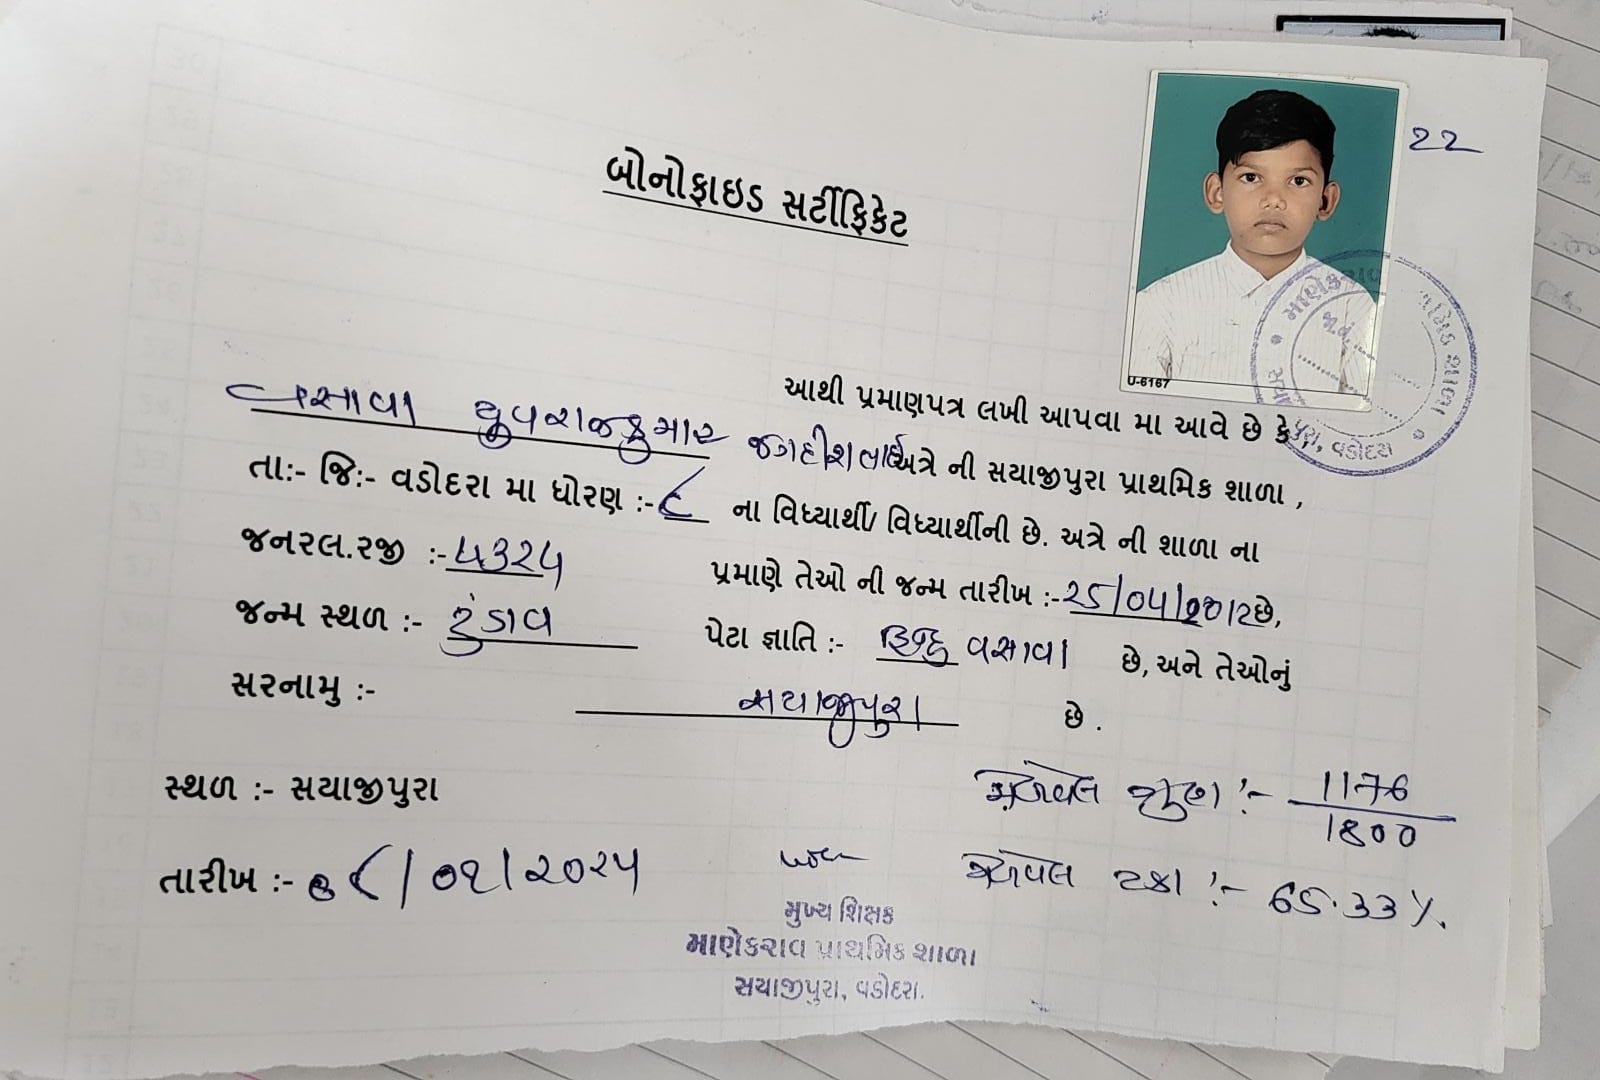 22
બોનોફાઇડ સર્ટીફિકેટ
U-6167
આથી પ્રમાણપત્ર લખી આપવા મા આવે છે કે,
વસાવા યુવરાજકુમાર જગદીશભાઈ અત્રે ની સયાજીપુરા પ્રાથમિક શાળા ,
તા:- જિ:- વડોદરા મા ધોરણ :- ૮ ના વિધ્યાર્થી/ વિધ્યાર્થીની છે. અત્રે ની શાળા ના
જનરલ.રજી :- ૫૩૨૫ પ્રમાણે તેઓ ની જન્મ તારીખ :- ૨૬/૦૫/૨૦૧૨ છે,
જન્મ સ્થળ :- ટુંડાવ પેટા જ્ઞાતિ :- હિન્દુ વસાવા છે, અને તેઓનું
સરનામુ :- સયાજીપુરા છે .
સ્થળ :- સયાજીપુરા
મેળવેલ ગુણ :- 1176
1800
તારીખ :- ૦૮/૦૧/૨૦૨૫
મેળવેલ ટકા :- 65.33 %.
મુખ્ય શિક્ષક
માણેકરાવ પ્રાથમિક શાળા
સયાજીપુરા, વડોદરા.